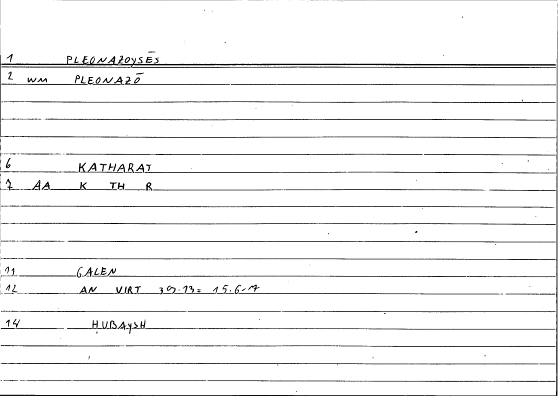 1 PLEONAZOYSĒS
2 WM PLEONAZŌ
6 KATHARAT
7 AA K TH R
11 GALEN
12 AN VIRT 39.13 = 15.6-7
14 ḤUBAYSH